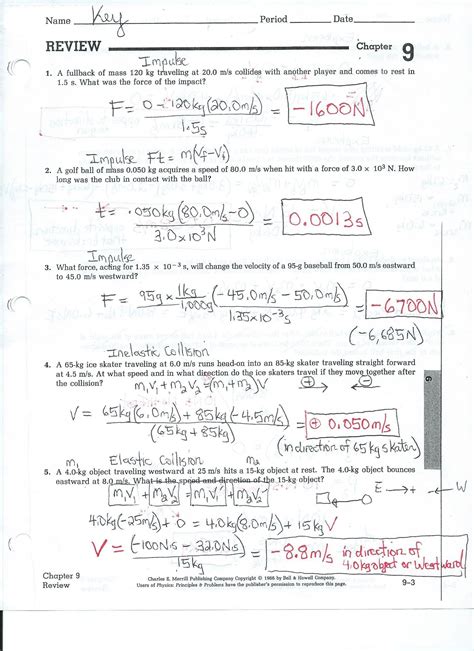 Name Key Period Date
REVIEW Chapter 9
Impulse
1. A fullback of mass 120 kg traveling at 20.0 m/s collides with another player and comes to rest in
1.5 s. What was the force of the impact?
F = 0 - 120kg(20.0m/s) / 1.5s = -1600N
Impulse Ft = m(Vf-Vi)
2. A golf ball of mass 0.050 kg acquires a speed of 80.0 m/s when hit with a force of 3.0 × 10³ N. How
long was the club in contact with the ball?
t = .050kg(80.0m/s-0) / 3.0x10³N = 0.0013s
Impulse
3. What force, acting for 1.35 × 10⁻³ s, will change the velocity of a 95-g baseball from 50.0 m/s eastward
to 45.0 m/s westward?
F = 95g x 1kg/1,000g (-45.0m/s - 50.0m/s) / 1.35x10⁻³s = -6700N
(-6,685N)
Inelastic Collision
4. A 65-kg ice skater traveling at 6.0 m/s runs head-on into an 85-kg skater traveling straight forward
at 4.5 m/s. At what speed and in what direction do the ice skaters travel if they move together after
the collision? m₁V₁ + m₂V₂ = (m₁+m₂)V ⊕→ ←⊖
V = 65kg(6.0m/s) + 85kg(-4.5m/s) / (65kg + 85kg) = ⊕ 0.050m/s
(in direction of 65kg skater)
m₁ Elastic Collision m₂
5. A 4.0-kg object traveling westward at 25 m/s hits a 15-kg object at rest. The 4.0-kg object bounces
eastward at 8.0 m/s. What is the speed and direction of the 15-kg object?
m₁V₁ + m₂V₂ = m₁V₁' + m₂V₂' E → + ← W
4.0kg(-25m/s) + 0 = 4.0kg(8.0m/s) + 15kgV
V = (-100N·s - 32.0N·s) / 15kg = -8.8m/s in direction of
4.0kg object or Westward
6
Chapter 9
Review
Charles E. Merrill Publishing Company Copyright © 1986 by Bell & Howell Company.
Users of Physics: Principles & Problems have the publisher's permission to reproduce this page.
9-3